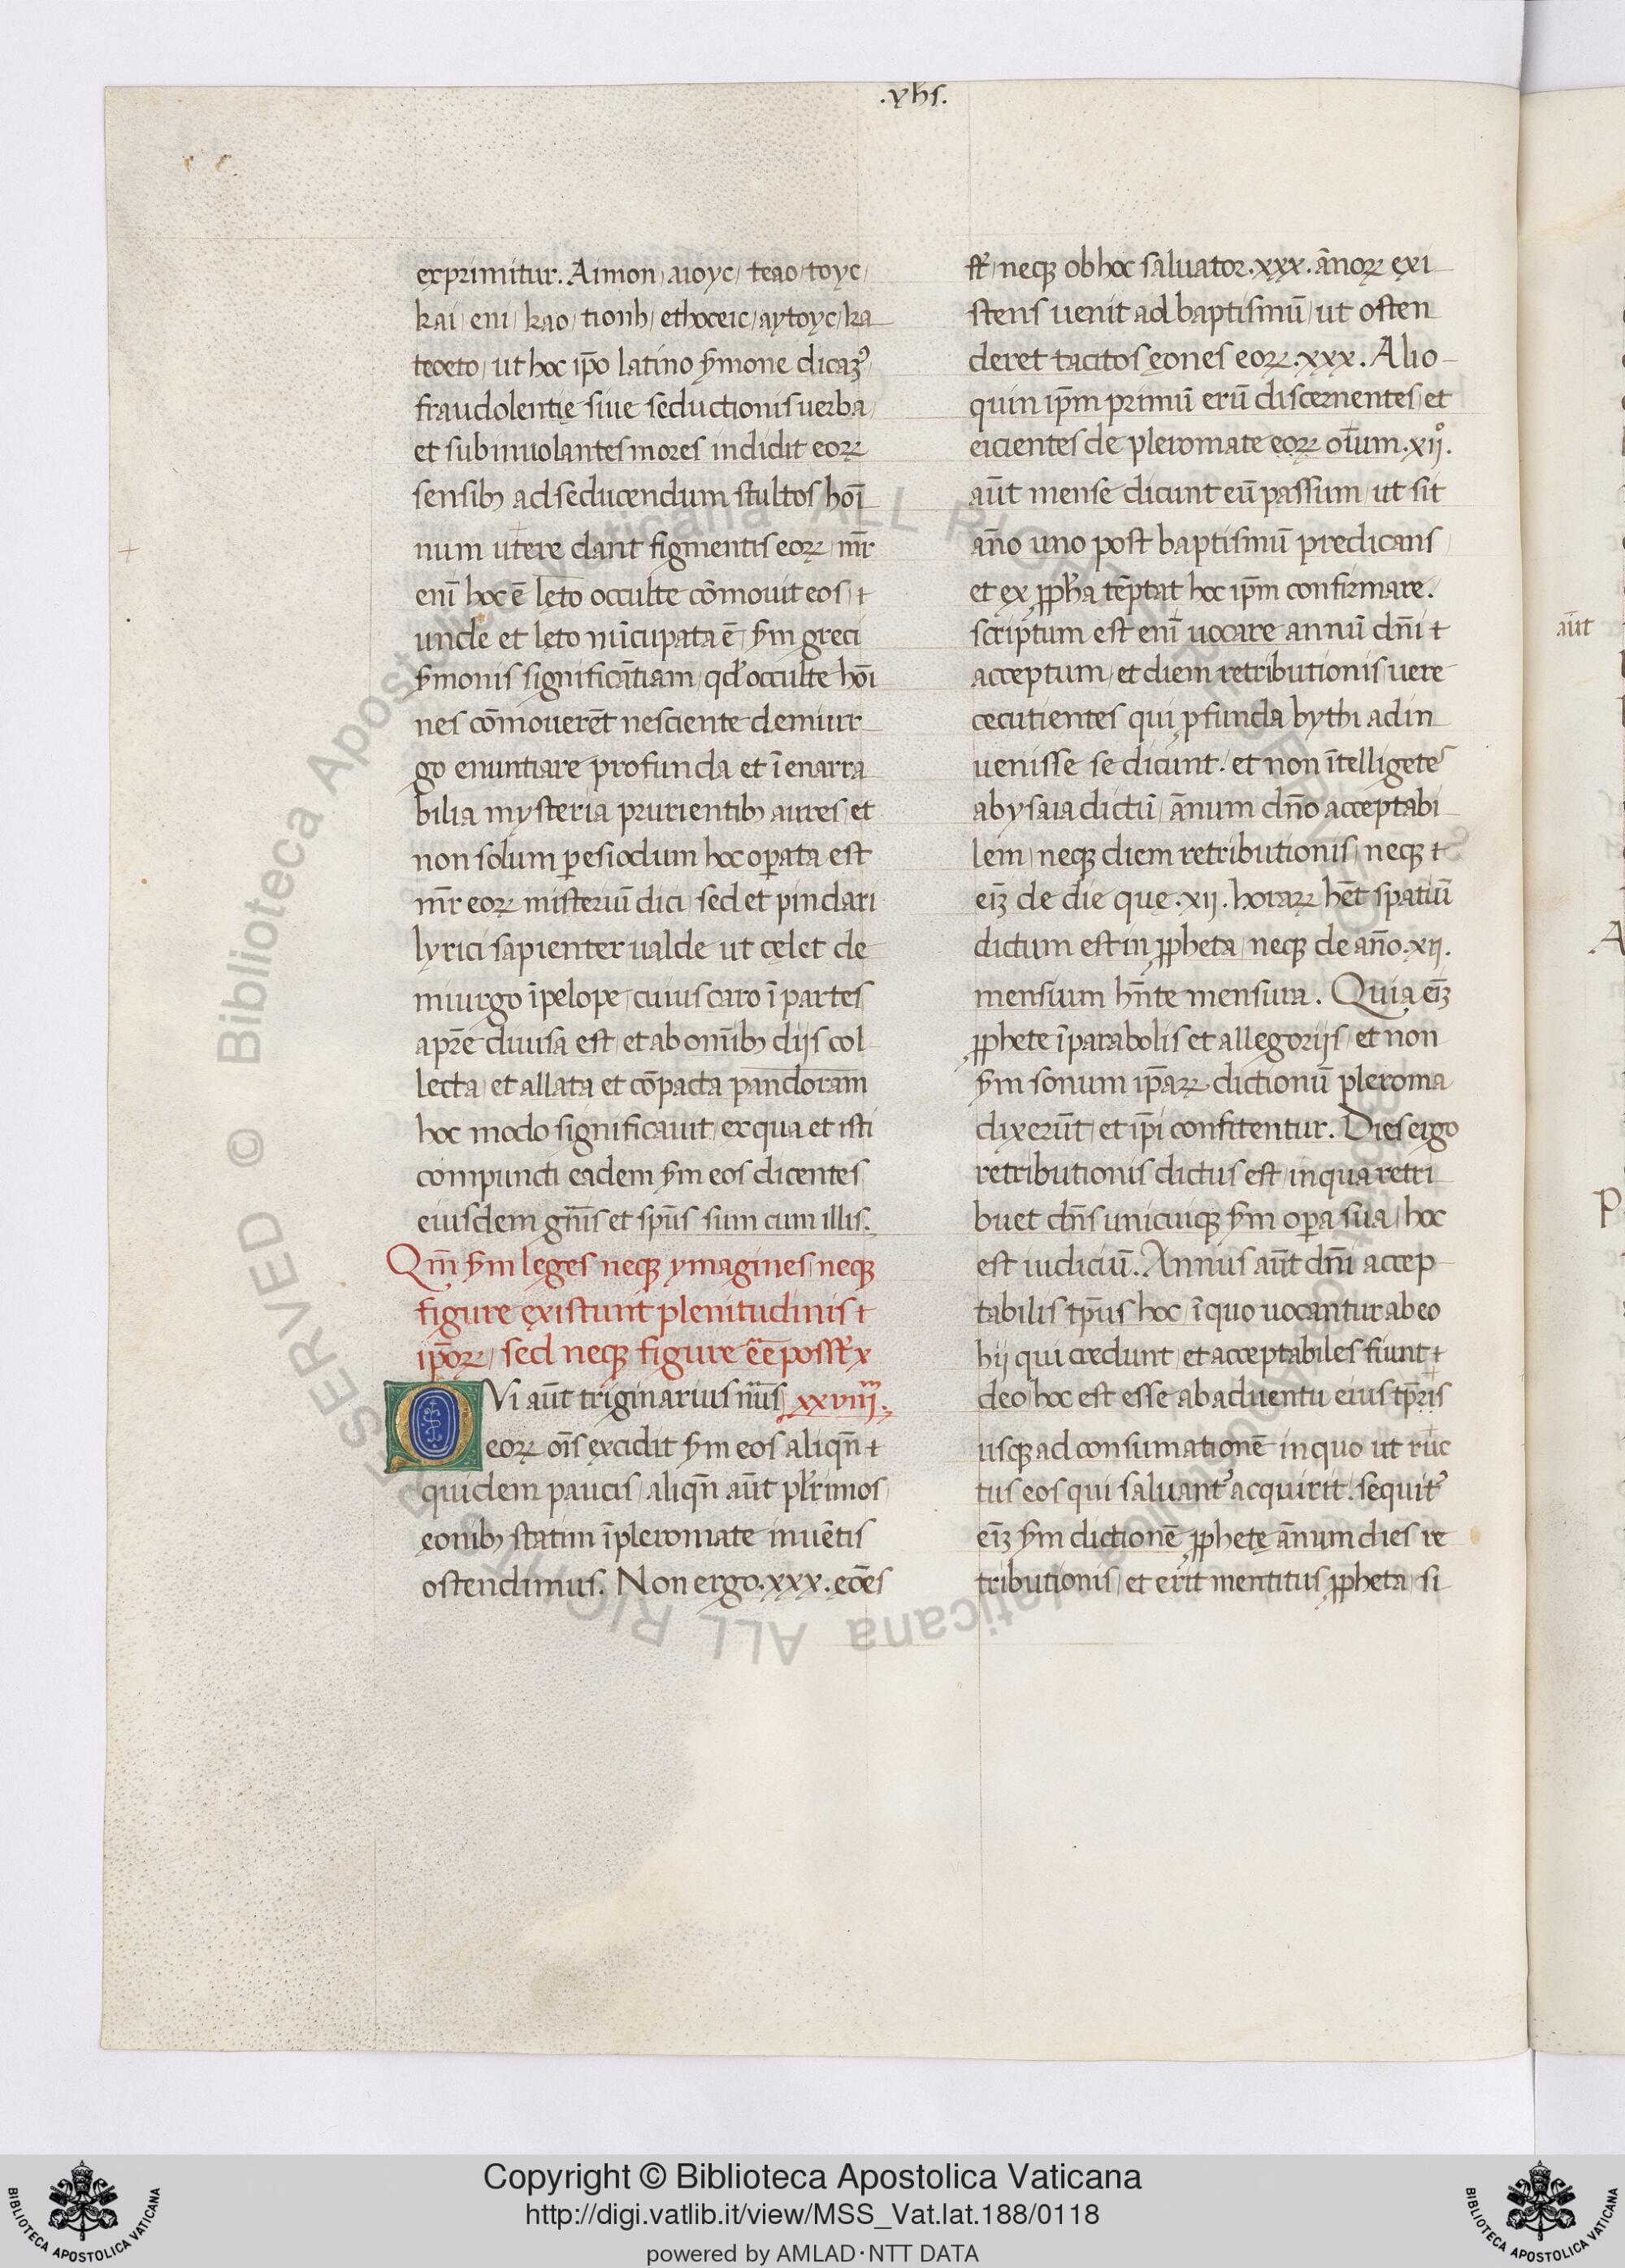 .yhs.
exprimitur. Aimon, aioyc, teao, toyc,
kai, eni, kao, tionh, ethoceic, aytoyc, ka
teoeto, ut hoc ip̄o latino s̄mone dicaꝫ᷒
fraudolentię siue seductionis uerba,
et subinuolantes mores indidit eoꝝ
sensibꝫ ad seducendum stultos hoī
num utere dant figmentis eoꝝ, mr̄
eni᷒̄ hoc ē leto occulte cōmouit eos, t
unde et leto nūcupata ē, s̄m greci
s̄monis significātiam, qđ occulte hōi
nes cōmouerēt nesciente demiur
go enuntiare profunda et īenarra
bilia mysteria prurientibꝫ aures, et
non solum ꝑ esiodum hoc oꝑata est
mr̄ eoꝝ misteriū dici, sed et pindari
lyrici sapienter ualde ut cęlet de
miurgo īpelope, cuius caro ī partes
a pr̄e diuisa est, et ab omībꝫ diis col
lecta, et allata et cōpacta pandoram
hoc modo significauit, ex qua et isti
compuncti eadem s̄m eos dicentes
eiusdem gn̄is et sp̄us sum cum illis.
Qm̄ s̄m leges neqꝫ ymagines, neqꝫ
figure existunt plenitudinis t
ip̄oꝝ, sed neqꝫ figure ēē poss̄t x
QVi aūt triginarius nūs xxviiii.
eoꝝ oīs excidit s̄m eos aliqn̄ t
quidem paucis, aliqn̄ aūt pl'rimos,
ęonibꝫ statim īpleromate inuētis
ostendimus. Non ergo .xxx. eōes
st̄, neqꝫ ob hoc saluator .xxx. ānoꝝ exi
stens uenit ad baptismū, ut osten
deret tacitos eones eoꝝ .xxx. Alio-
quin ip̄m primū erūt discernentes, et
eicientes de pleromate eoꝝ oīum .xijº.
aūt mense dicunt eū passum, ut sit
an̄o uno post baptismū predicans,
et ex ꝓph̄a tēptat hoc ip̄m confirmare.
scriptum est enī uocare annū dn̄i t
acceptum, et diem retributionis, uere
cecutientes qui ꝓfunda bythi adin
uenisse se dicunt. et non ītelligetes
ab ysaia dictū, ānum dn̄o acceptabi
lem, neqꝫ diem retributionis, neqꝫ t
eīꝫ de die que .xij. horaꝝ hēt spatiū
dictum est in ꝓpheta, neqꝫ de an̄o .xij.
mensium hn̄te mensura. Quia eīꝫ
ꝓphete īparabolis et allegoriis, et non
s̄m sonum ip̄aꝝ dictionū pleroma
dixerūt, et ip̄i confitentur. Dies ergo
retributionis dictus est, in qua retri
buet dn̄s unicuiqꝫ s̄m oꝑa sua, hoc
est iudiciū. Annus aūt dn̄i accep
tabilis tp̄us hoc, ī quo uocantur ab eo
hij qui credunt, et acceptabiles fiunt t
deo, hoc est esse ab aduentu eius tp̄ris
usqꝫ ad consumationē in quo ut ruc
tus eos qui saluant᷒ acquirit. sequit᷒
eīꝫ s̄m dictionē ꝓphete ānum dies re
tributionis, et erit mentitus ꝓpheta, si
aūt
A
P
Copyright © Biblioteca Apostolica Vaticana
http://digi.vatlib.it/view/MSS_Vat.lat.188/0118
powered by AMLAD·NTT DATA